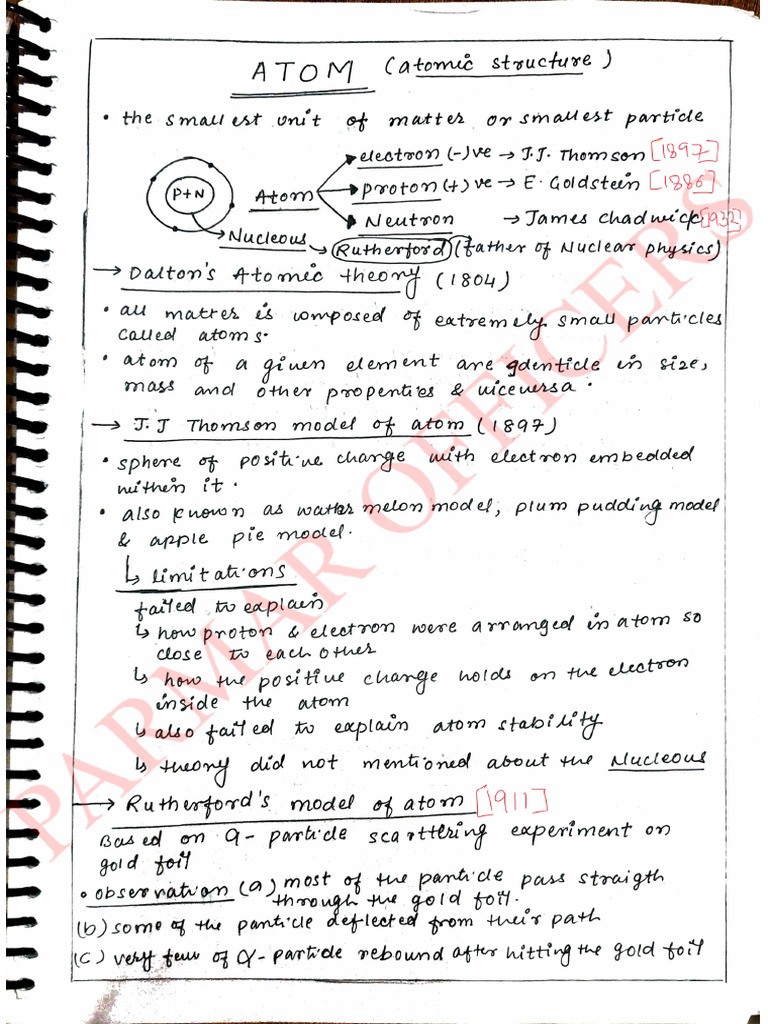 ATOM (atomic structure)
• the smallest unit of matter or smallest particle
electron (-)ve → J.J. Thomson [1897]
P+N Atom proton (+)ve → E. Goldstein [1886]
Neutron → James chadwick [1932]
Nucleous → Rutherford (father of Nuclear physics)
→ Dalton's Atomic theory (1804)
• all matter is composed of extremely small particles
called atoms.
• atom of a given element are identicle in size,
mass and other properties & viceversa.
→ J.J Thomson model of atom (1897)
• sphere of positive charge with electron embedded
within it.
• also known as water melon model, plum pudding model
& apple pie model.
↳ limitations
failed to explain
↳ how proton & electron were arranged in atom so
close to each other
↳ how the positive charge holds on the electron
inside the atom
↳ also failed to explain atom stability
↳ theory did not mentioned about the Nucleous
→ Rutherford's model of atom [1911]
Based on α- particle scarttering experiment on
gold foil
• observation (a) most of the particle pass straigth
through the gold foil.
(b) some of the particle deflected from their path
(c) very few of α- particle rebound after hitting the gold foil
PARMAR OFFICERS